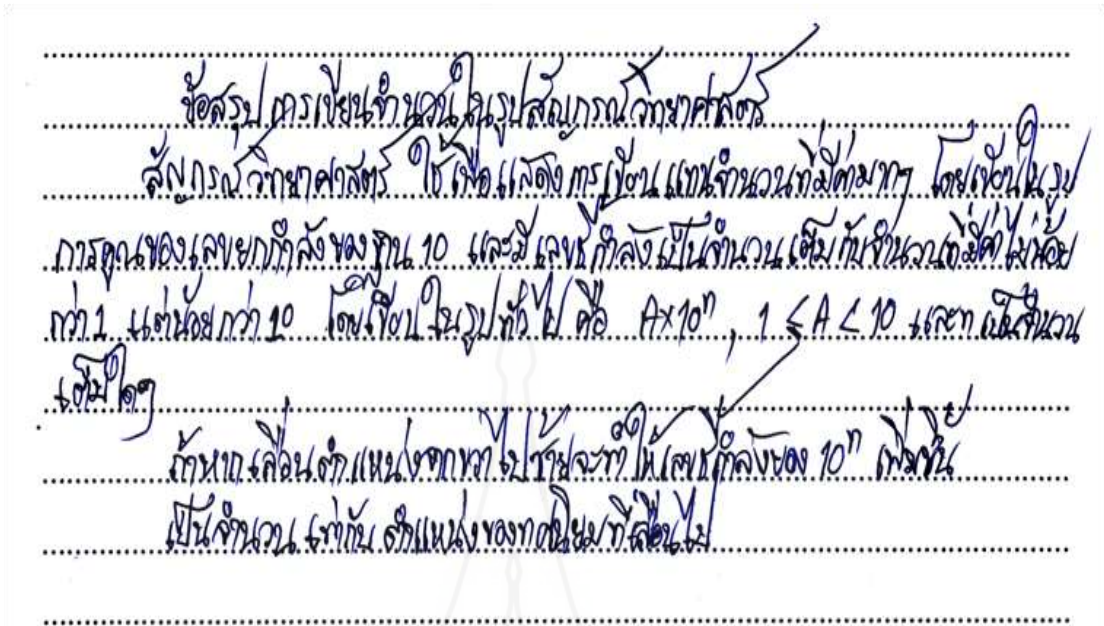 ข้อสรุป การเขียนจำนวนในรูปสัญกรณ์วิทยาศาสตร์
สัญกรณ์วิทยาศาสตร์ ใช้เพื่อแสดงการเขียนแทนจำนวนที่มีค่ามากๆ โดยเขียนในรูป
การคูณของเลขยกกำลังของฐาน 10 และมีเลขชี้กำลังเป็นจำนวนเต็มกับจำนวนที่มีค่าไม่น้อย
กว่า 1 แต่น้อยกว่า 10 โดยเขียนในรูปทั่วไป คือ A×10ⁿ , 1 ≤ A < 10 และ n เป็นจำนวน
เต็มใดๆ
ถ้าหากเลื่อนตำแหน่งจากขวาไปซ้ายจะทำให้เลขชี้กำลังของ 10ⁿ เพิ่มขึ้น
เป็นจำนวนเท่ากับตำแหน่งของทศนิยมที่เลื่อนไป